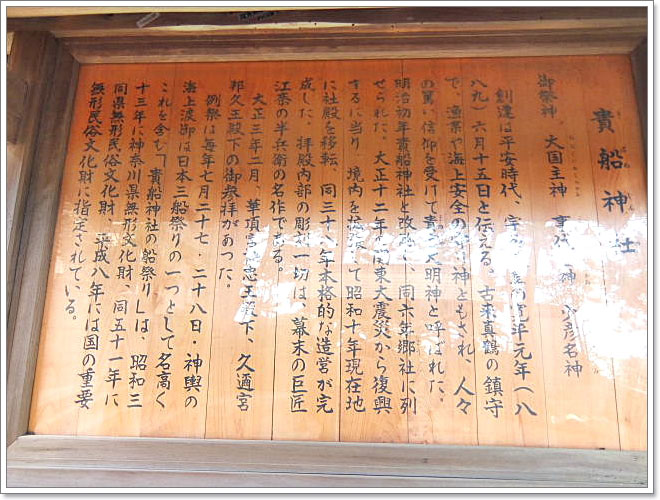 貴船神社
御祭神　大国主神　事代主神　少彦名神
創建は平安時代、宇多天皇の寛平元年（八
八九）六月十五日と伝える。古来真鶴の鎮守
で、漁業や海上安全の守り神ともされ、人々
の篤い信仰を受けて貴宮大明神と呼ばれた。
明治初年貴船神社と改め、同六年郷社に列
せられた。大正十二年の関東大震災から復興
するに当り、境内を拡張して昭和十年現在地
に社殿を移転、同三十八年本格的な造営が完
成した。拝殿内部の彫刻一切は、幕末の巨匠
江奈の半兵衛の名作である。
大正三年二月、華頂宮博忠王殿下、久邇宮
邦久王殿下の御参拝があった。
例祭は毎年七月二十七・二十八日・神輿の
海上渡御は日本三船祭りの一つとして名高く
これを含む「貴船神社の船祭り」は、昭和三
十三年に神奈川県無形文化財、同五十一年に
同県無形民俗文化財、平成八年には国の重要
無形民俗文化財に指定されている。